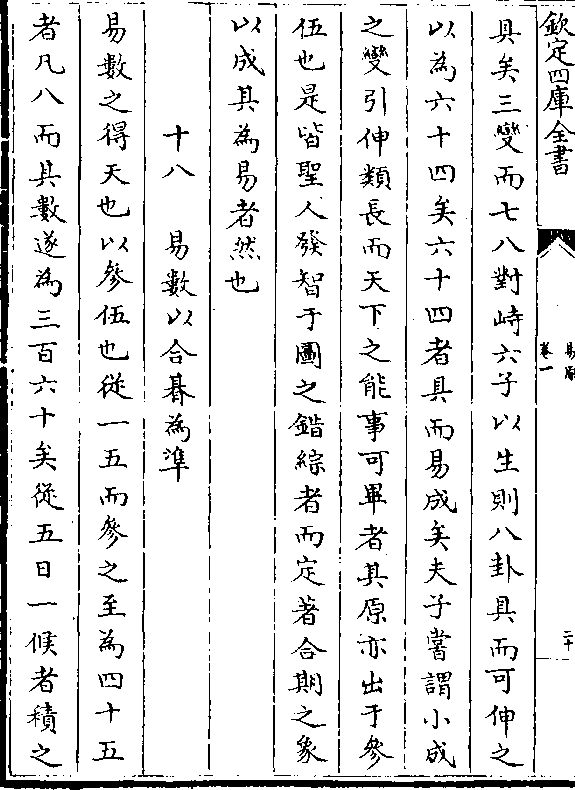 欽定四庫全書
易原
卷一
二十
具矣三變而七八對峙六子以生則八卦具而可伸之
以為六十四矣六十四者具而易成矣夫子嘗謂小成
之變引伸類長而天下之能事可畢者其原亦出于參
伍也是皆聖人發智于圖之錯綜者而定著合期之象
以成其為易者然也
十八 易數以合朞為準
易數之得天也以參伍也從一五而參之至為四十五
者凡八而其數遂為三百六十矣從五日一候者積之